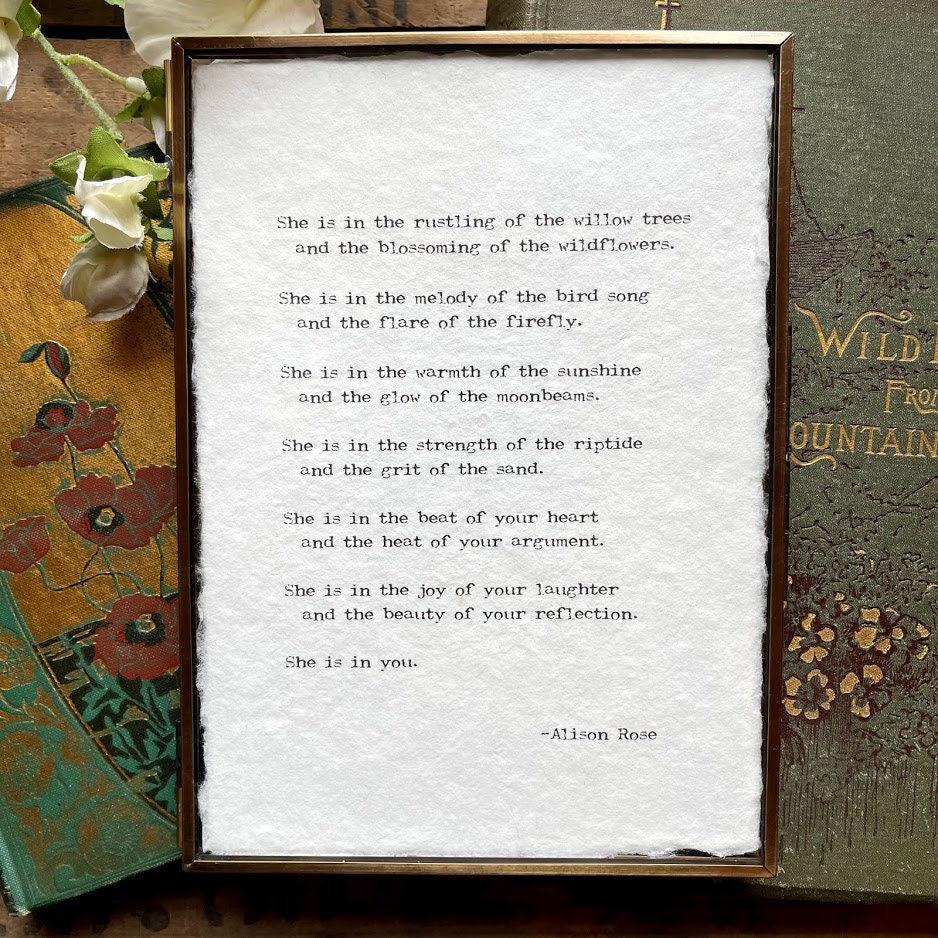 She is in the rustling of the willow trees
and the blossoming of the wildflowers.
She is in the melody of the bird song
and the flare of the firefly.
She is in the warmth of the sunshine
and the glow of the moonbeams.
She is in the strength of the riptide
and the grit of the sand.
She is in the beat of your heart
and the heat of your argument.
She is in the joy of your laughter
and the beauty of your reflection.
She is in you.
-Alison Rose
WILD